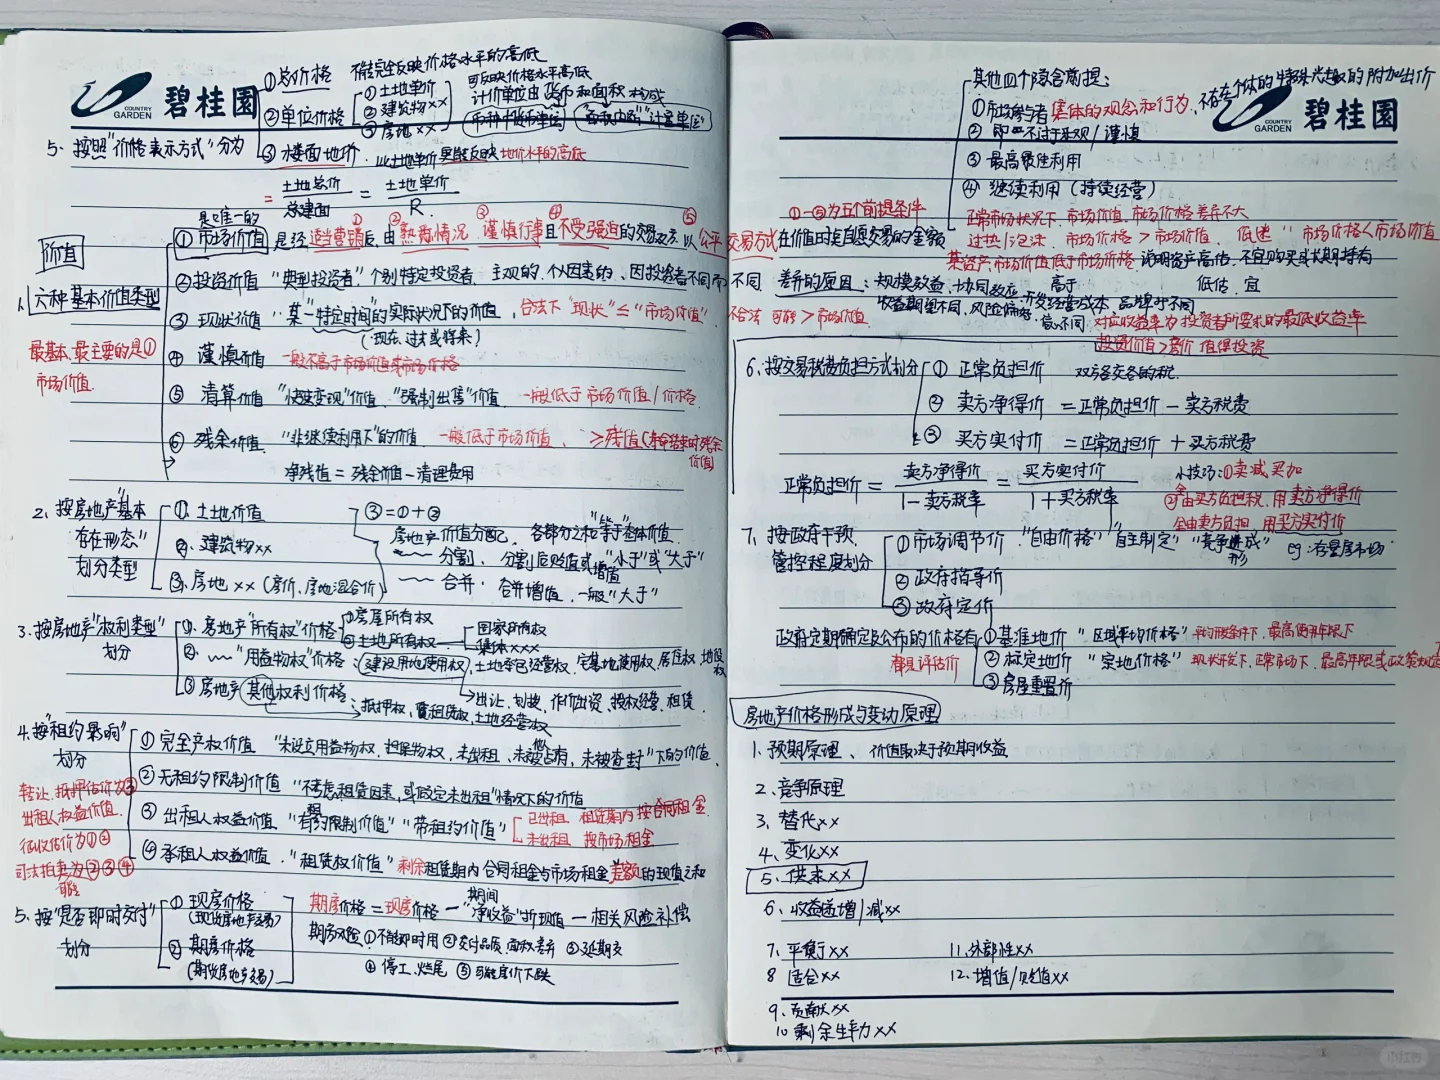 COUNTRY GARDEN 碧桂园
5. 按照"价格表示方式"分为
①总价格 不能完全反映价格水平的高低
②单位价格 ①土地单价 ②建筑物xx ③房地xx
可反映价格水平高低
计价单位由货币和面积构成
币种+货币单位 面积内涵+计量单位
③楼面地价. 比土地单价更能反映地价水平的高低
= 土地总价/总建面 = 土地单价/R.
价值
1. 六种基本价值类型
最基本、最主要的是①市场价值.
是唯一的
①市场价值 是经①适当营销后,由②熟悉情况、③谨慎行事且④不受强迫的交易双方,以⑤公平交易方式在价值时点自愿交易的金额
②投资价值 "典型投资者"个别特定投资者, 主观的、个人因素的、因投资者不同而不同
③现状价值 "某一特定时间"的实际状况下的价值 合法下"现状"≤"市场价值". 不合法 可能>市场价值.
(现在、过去或将来)
④谨慎价值 一般不高于市场价值或市场价格
⑤清算价值 "快速变现"价值、"强制出售"价值 一般低于市场价值/价格.
⑥残余价值. "非继续利用下"的价值. 一般低于市场价值、≥残值(寿命结束时残余价值)
净残值=残余价值-清理费用
2. 按房地产"基本存在形态"划分类型
①. 土地价值
②. 建筑物xx
③. 房地xx (房价、房地混合价)
③=①+②
房地产价值分配, 各部分之和"等于"基本价值.
〃 分割, 分割后贬值或增值"小于"或"大于"
〃 合并. 合并增值. 一般"大于"
3. 按房地产"权利类型"划分
①. 房地产"所有权"价格 ①房屋所有权 ②土地所有权 国家所有权 集体xxx
②. 〃 "用益物权"价格: 建设用地使用权, 土地承包经营权、宅基地使用权、居住权、地役权
出让、划拨、作价出资、授权经营、租赁
③房地产其他权利价格: 抵押权、租赁权、土地经营权
4. 按"租约影响"划分
①完全产权价值 "未设立用益物权、担保物权, 未出租, 未被他占有, 未被查封"下的价值、
②无租约限制价值 "不考虑租赁因素, 或假定未出租"情况下的价值
③出租人权益价值 "有租约限制价值" "带租约价值" 已出租. 租赁期内按合同租金. 未出租 按市场租金
④承租人权益价值. "租赁权价值" 剩余租赁期内合同租金与市场租金差额的现值之和
转让、抵押估价为③
出租人权益价值.
征收估价为①②
司法拍卖为②③④
可能
5. 按"是否即时交付"划分
①现房价格
(现货房地产交易)
②期房价格
(期货房地产交易)
期房价格=现房价格-期间"净收益"折现值-相关风险补偿
期房风险①不能即时用 ②交付品质、面积差异 ③延期交
④停工、烂尾 ⑤可能房价下跌
COUNTRY GARDEN 碧桂园
其他四个隐含前提:
①市场参与者集体的观念和行为, 不存在个体的特殊兴趣的附加出价
②即不过于乐观/谨慎
③最高最佳利用
④继续利用(持续经营)
①-⑤为五个前提条件
正常市场状况下, 市场价值、市场价格差异不大
过热/泡沫. 市场价格>市场价值 低迷 〃 市场价格<市场价值
某资产,市场价值低于市场价格, 说明资产高估, 不宜购买或长期持有
高于 低估, 宜
差异的原因: 规模效益、协同效应、
收益期望不同、风险偏好、开发经营成本、品牌等不同
对应收益率为投资者所要求的最低收益率
投资价值>商价 值得投资
6. 按交易税费负担方式划分
①正常负担价 双方各交各的税.
②卖方净得价=正常负担价-卖方税费
③买方实付价=正常负担价+买方税费
正常负担价=卖方净得价/1-卖方税率=买方实付价/1+买方税率
小技巧:①卖减买加
②全由买方负担税, 用卖方净得价
全由卖方负担, 用买方实付价
7. 按政府干预、管控程度划分
①市场调节价 "自由价格" "自主制定" "竞争形成" eg:存量房市场.
②政府指导价
③政府定价
政府定期确定及公布的价格有
都是评估价
①基准地价 "区域平均价格" 平均条件下、最高使用年限下
②标定地价 "宗地价格" 现状开发下、正常市场下、最高年限或政策规定下
③房屋重置价
房地产价格形成与变动原理
1. 预期原理、 价值取决于预期收益
2. 竞争原理
3. 替代xx
4. 变化xx
5. 供求xx
6. 收益递增/减xx
7. 平衡xx
8 适合xx
9. 贡献xx
10 剩余生产力xx
11. 外部性xx
12. 增值/贬值xx
小红书